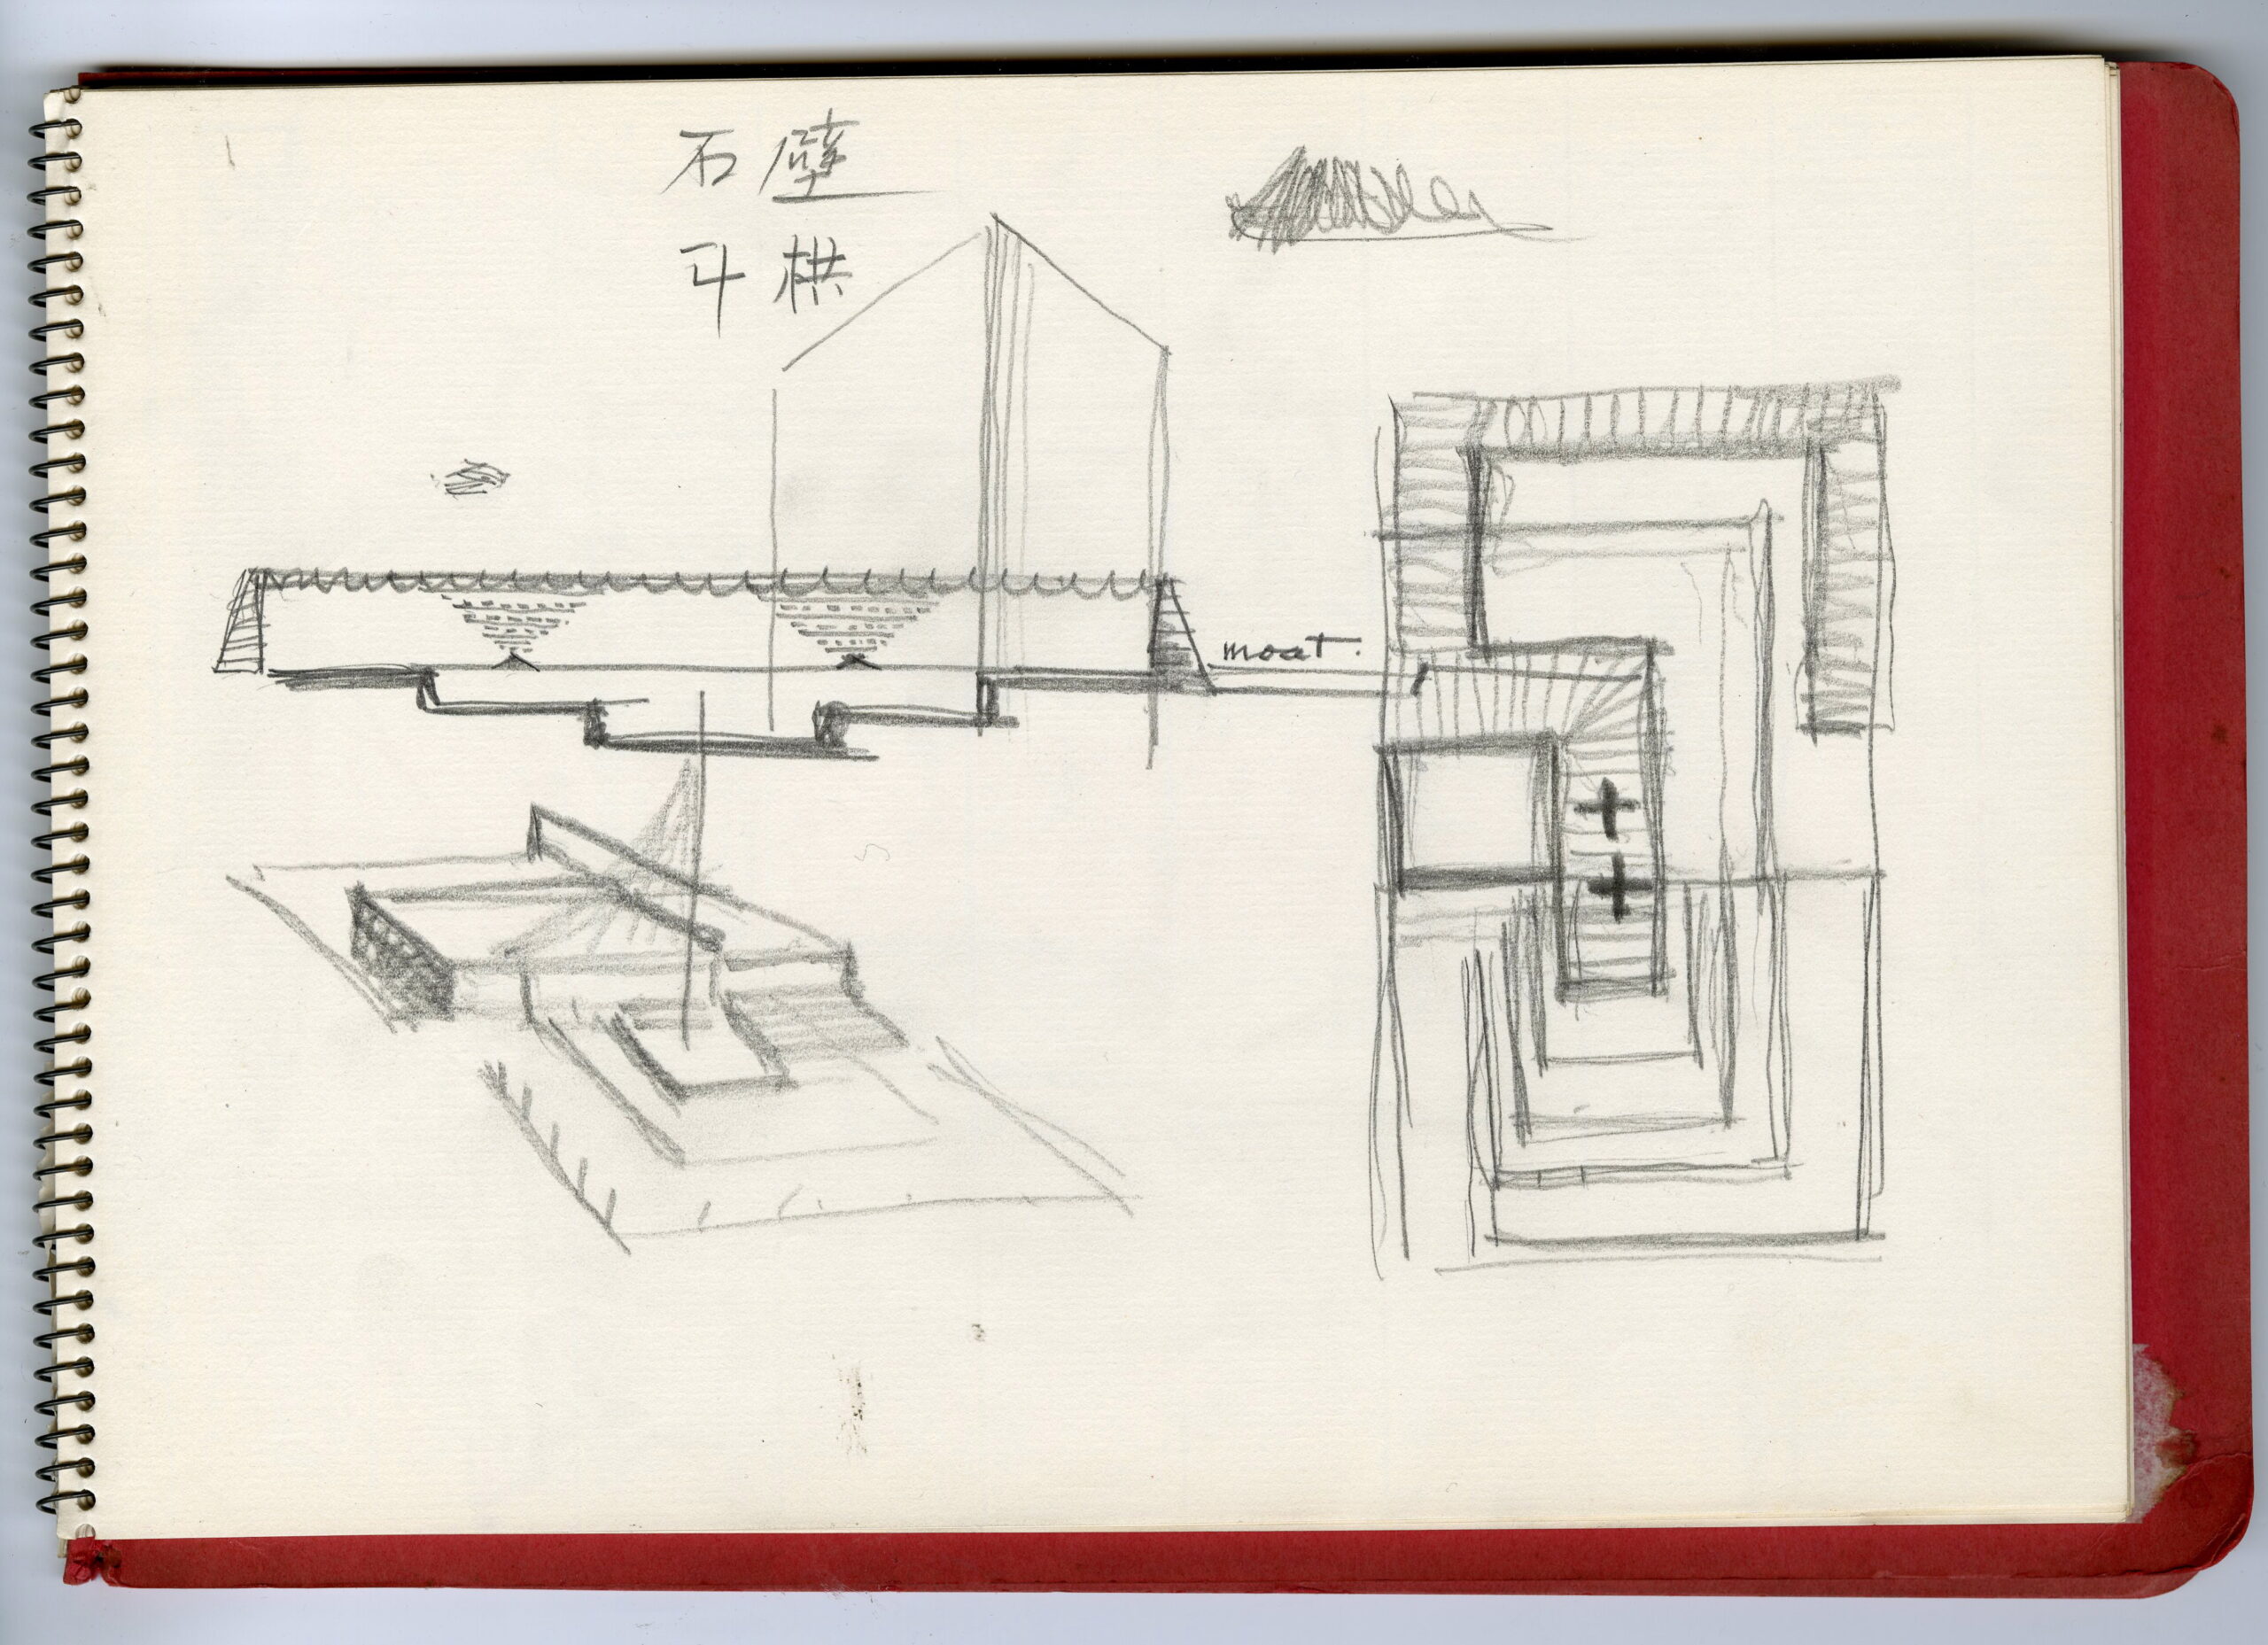 石壁
斗栱
moat.